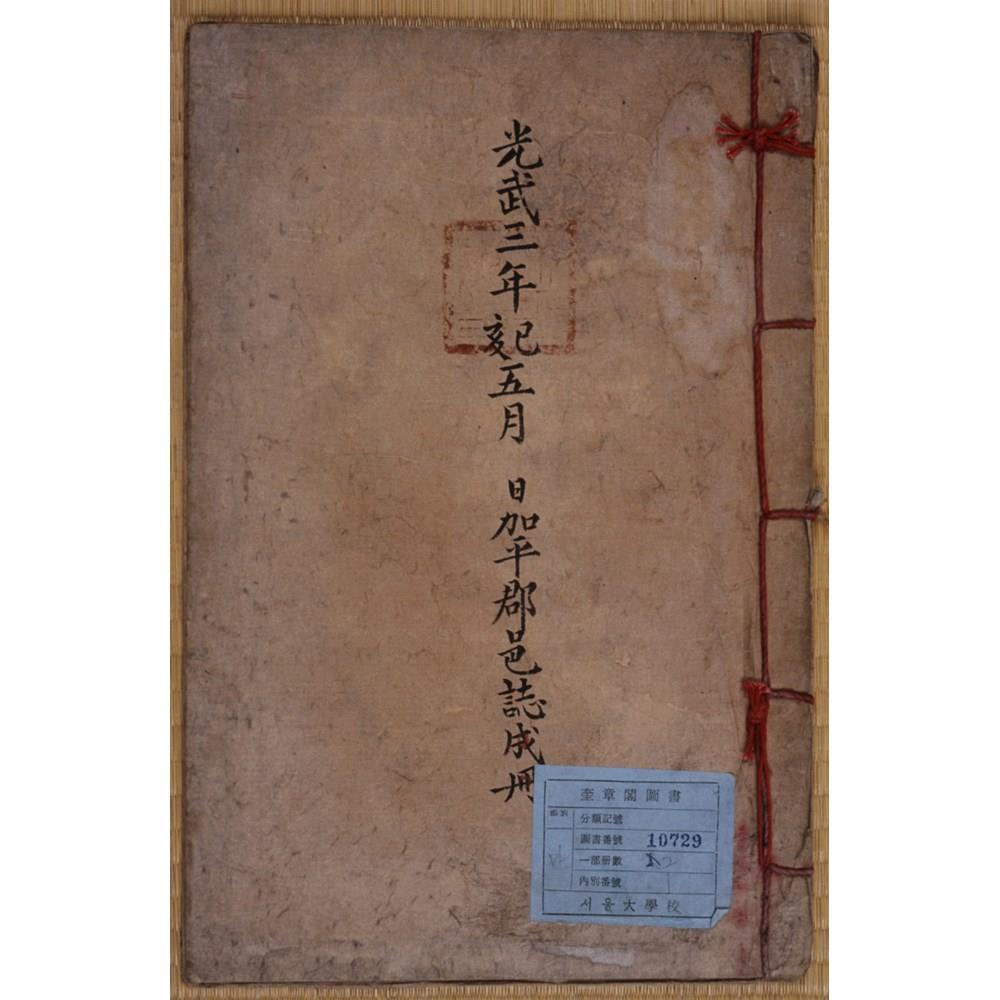 光武三年己亥五月 日加平郡邑誌成冊
奎章閣圖書
分類記號
圖書番號 10729
一部冊數 2
內別番號
서울大學校